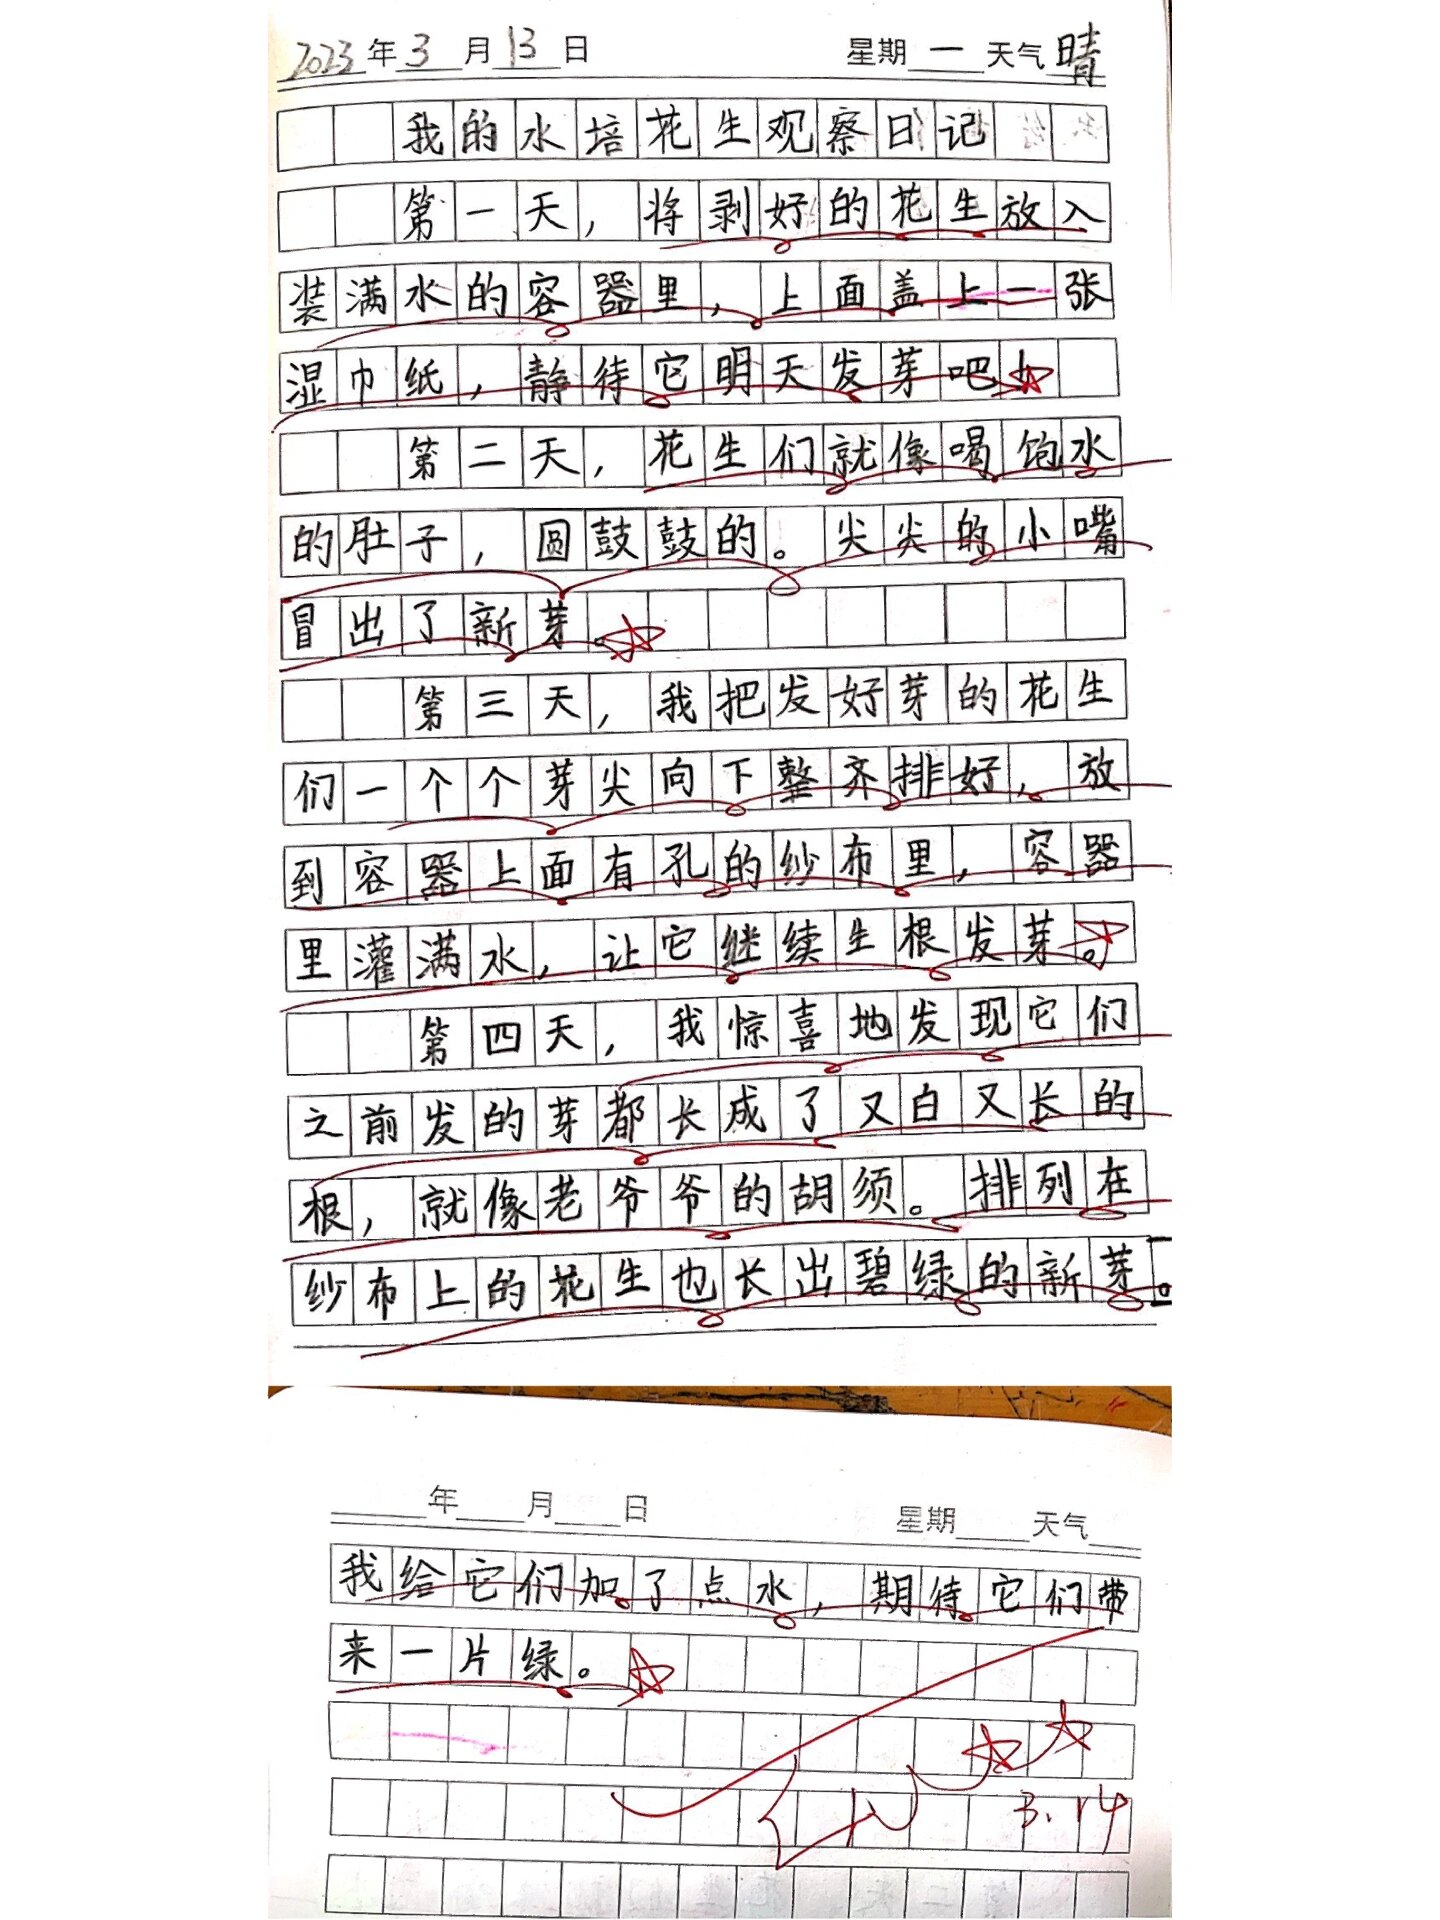 2023年3月13日 星期一 天气晴
我的水培花生观察日记
第一天，将剥好的花生放入
装满水的容器里，上面盖上一张
湿巾纸，静待它明天发芽吧！
第二天，花生们就像喝饱水
的肚子，圆鼓鼓的。尖尖的小嘴
冒出了新芽。
第三天，我把发好芽的花生
们一个个芽尖向下整齐排好，放
到容器上面有孔的纱布里，容器
里灌满水，让它继续生根发芽。
第四天，我惊喜地发现它们
之前发的芽都长成了又白又长的
根，就像老爷爷的胡须。排列在
纱布上的花生也长出碧绿的新芽。
年 月 日 星期 天气
我给它们加了点水，期待它们带
来一片绿。
3.14